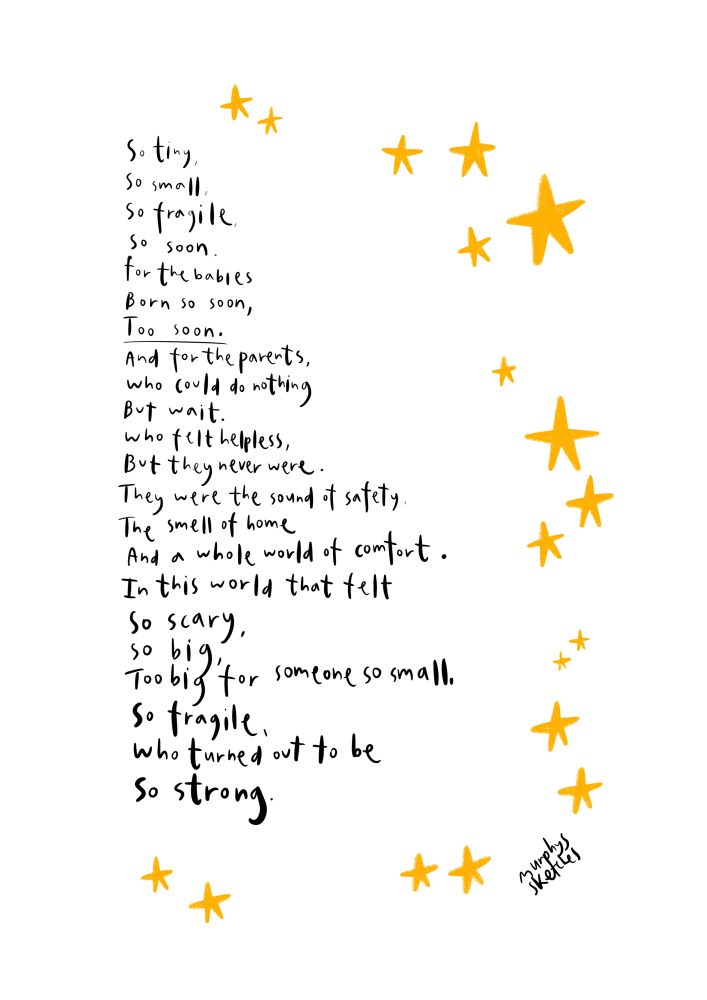 So tiny,
So small,
So fragile,
So soon.
for the babies
Born so soon,
Too soon.
And for the parents,
who could do nothing
But wait.
who felt helpless,
But they never were.
They were the sound of safety.
The smell of home
And a whole world of comfort.
In this world that felt
So scary,
so big,
Too big for someone so small.
So fragile,
who turned out to be
So strong.
murphys
sketches